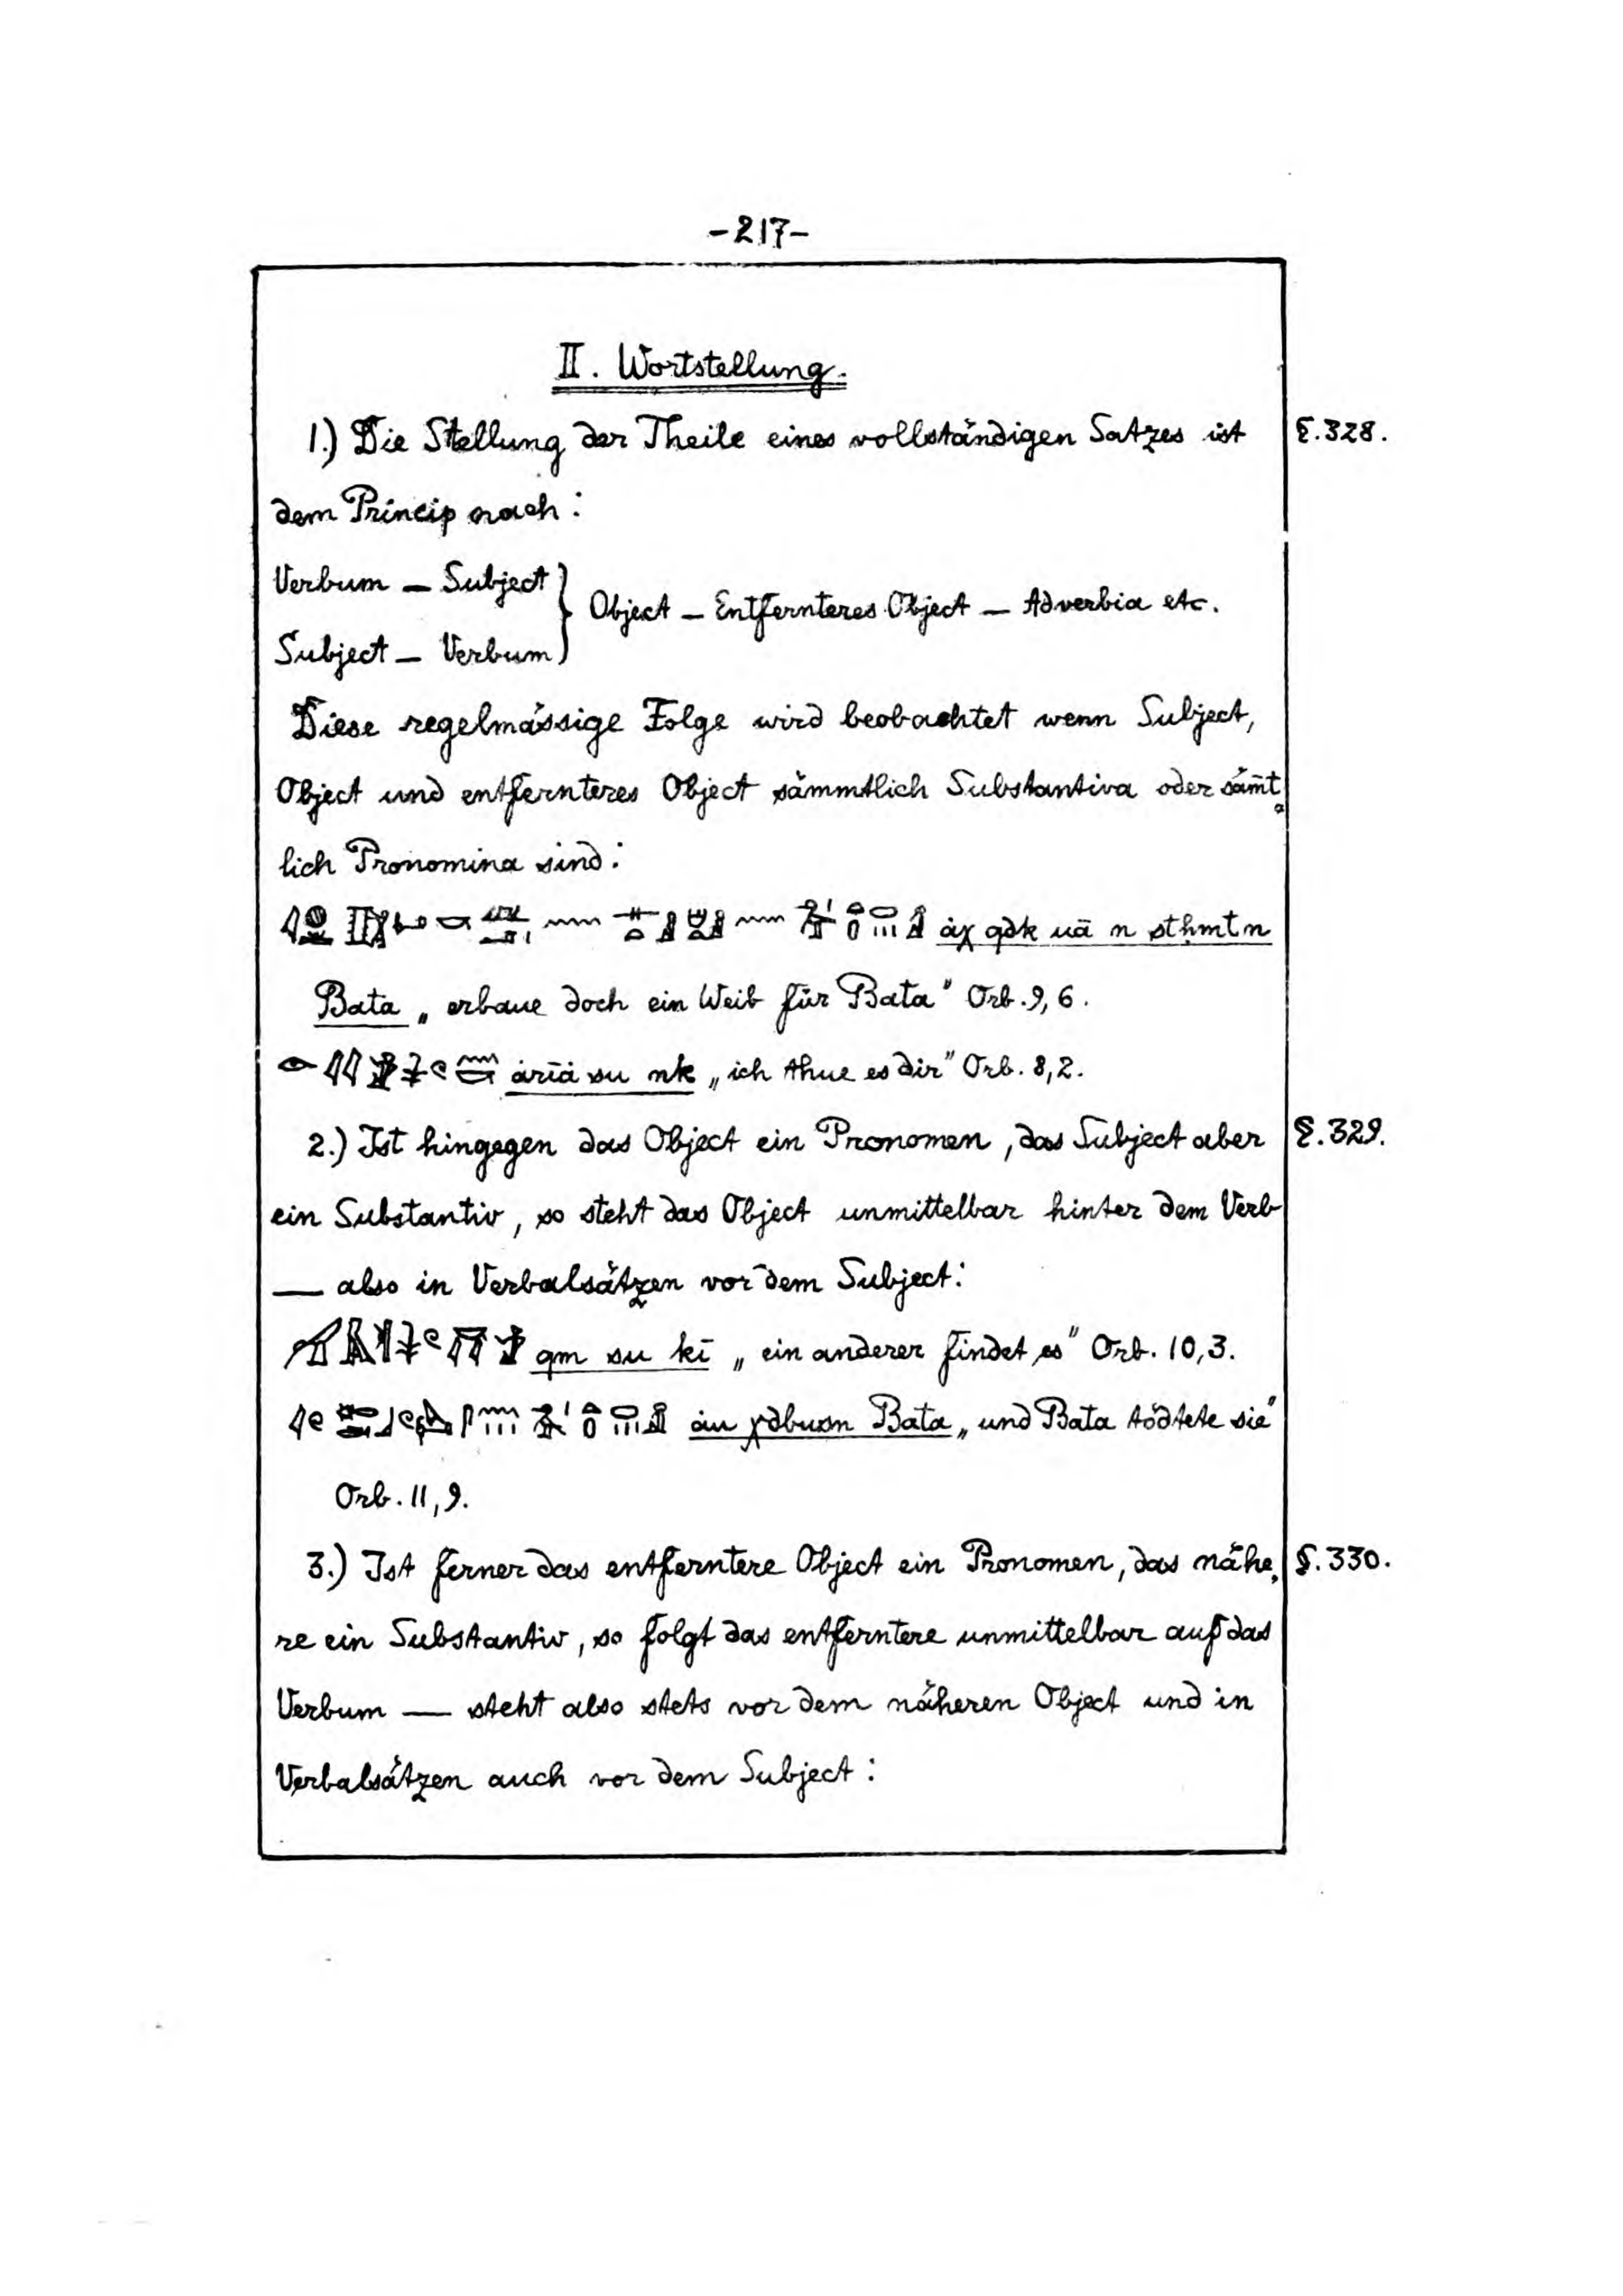 -217-
II. Wortstellung.
1.) Die Stellung der Theile eines vollständigen Satzes ist §.328.
dem Princip nach:
Verbum — Subject } Object — Entfernteres Object — Adverbia etc.
Subject — Verbum
Diese regelmässige Folge wird beobachtet wenn Subject,
Object und entfernteres Object sämmtlich Substantiva oder säm̄t-
lich Pronomina sind:
n sthmt n
Bata „erbaue doch ein Weib für Bata" Orb. 9, 6.
su nk „ich thue es dir" Orb. 8, 2.
2.) Ist hingegen das Object ein Pronomen, das Subject aber §.329.
ein Substantiv, so steht das Object unmittelbar hinter dem Verb
— also in Verbalsätzen vor dem Subject:
qm su kī „ein anderer findet es" Orb. 10, 3.
åu χdbusn Bata „und Bata tödtete sie"
Orb. 11, 9.
3.) Ist ferner das entferntere Object ein Pronomen, das nähe- §.330.
re ein Substantiv, so folgt das entferntere unmittelbar auf das
Verbum — steht also stets vor dem näheren Object und in
Verbalsätzen auch vor dem Subject: